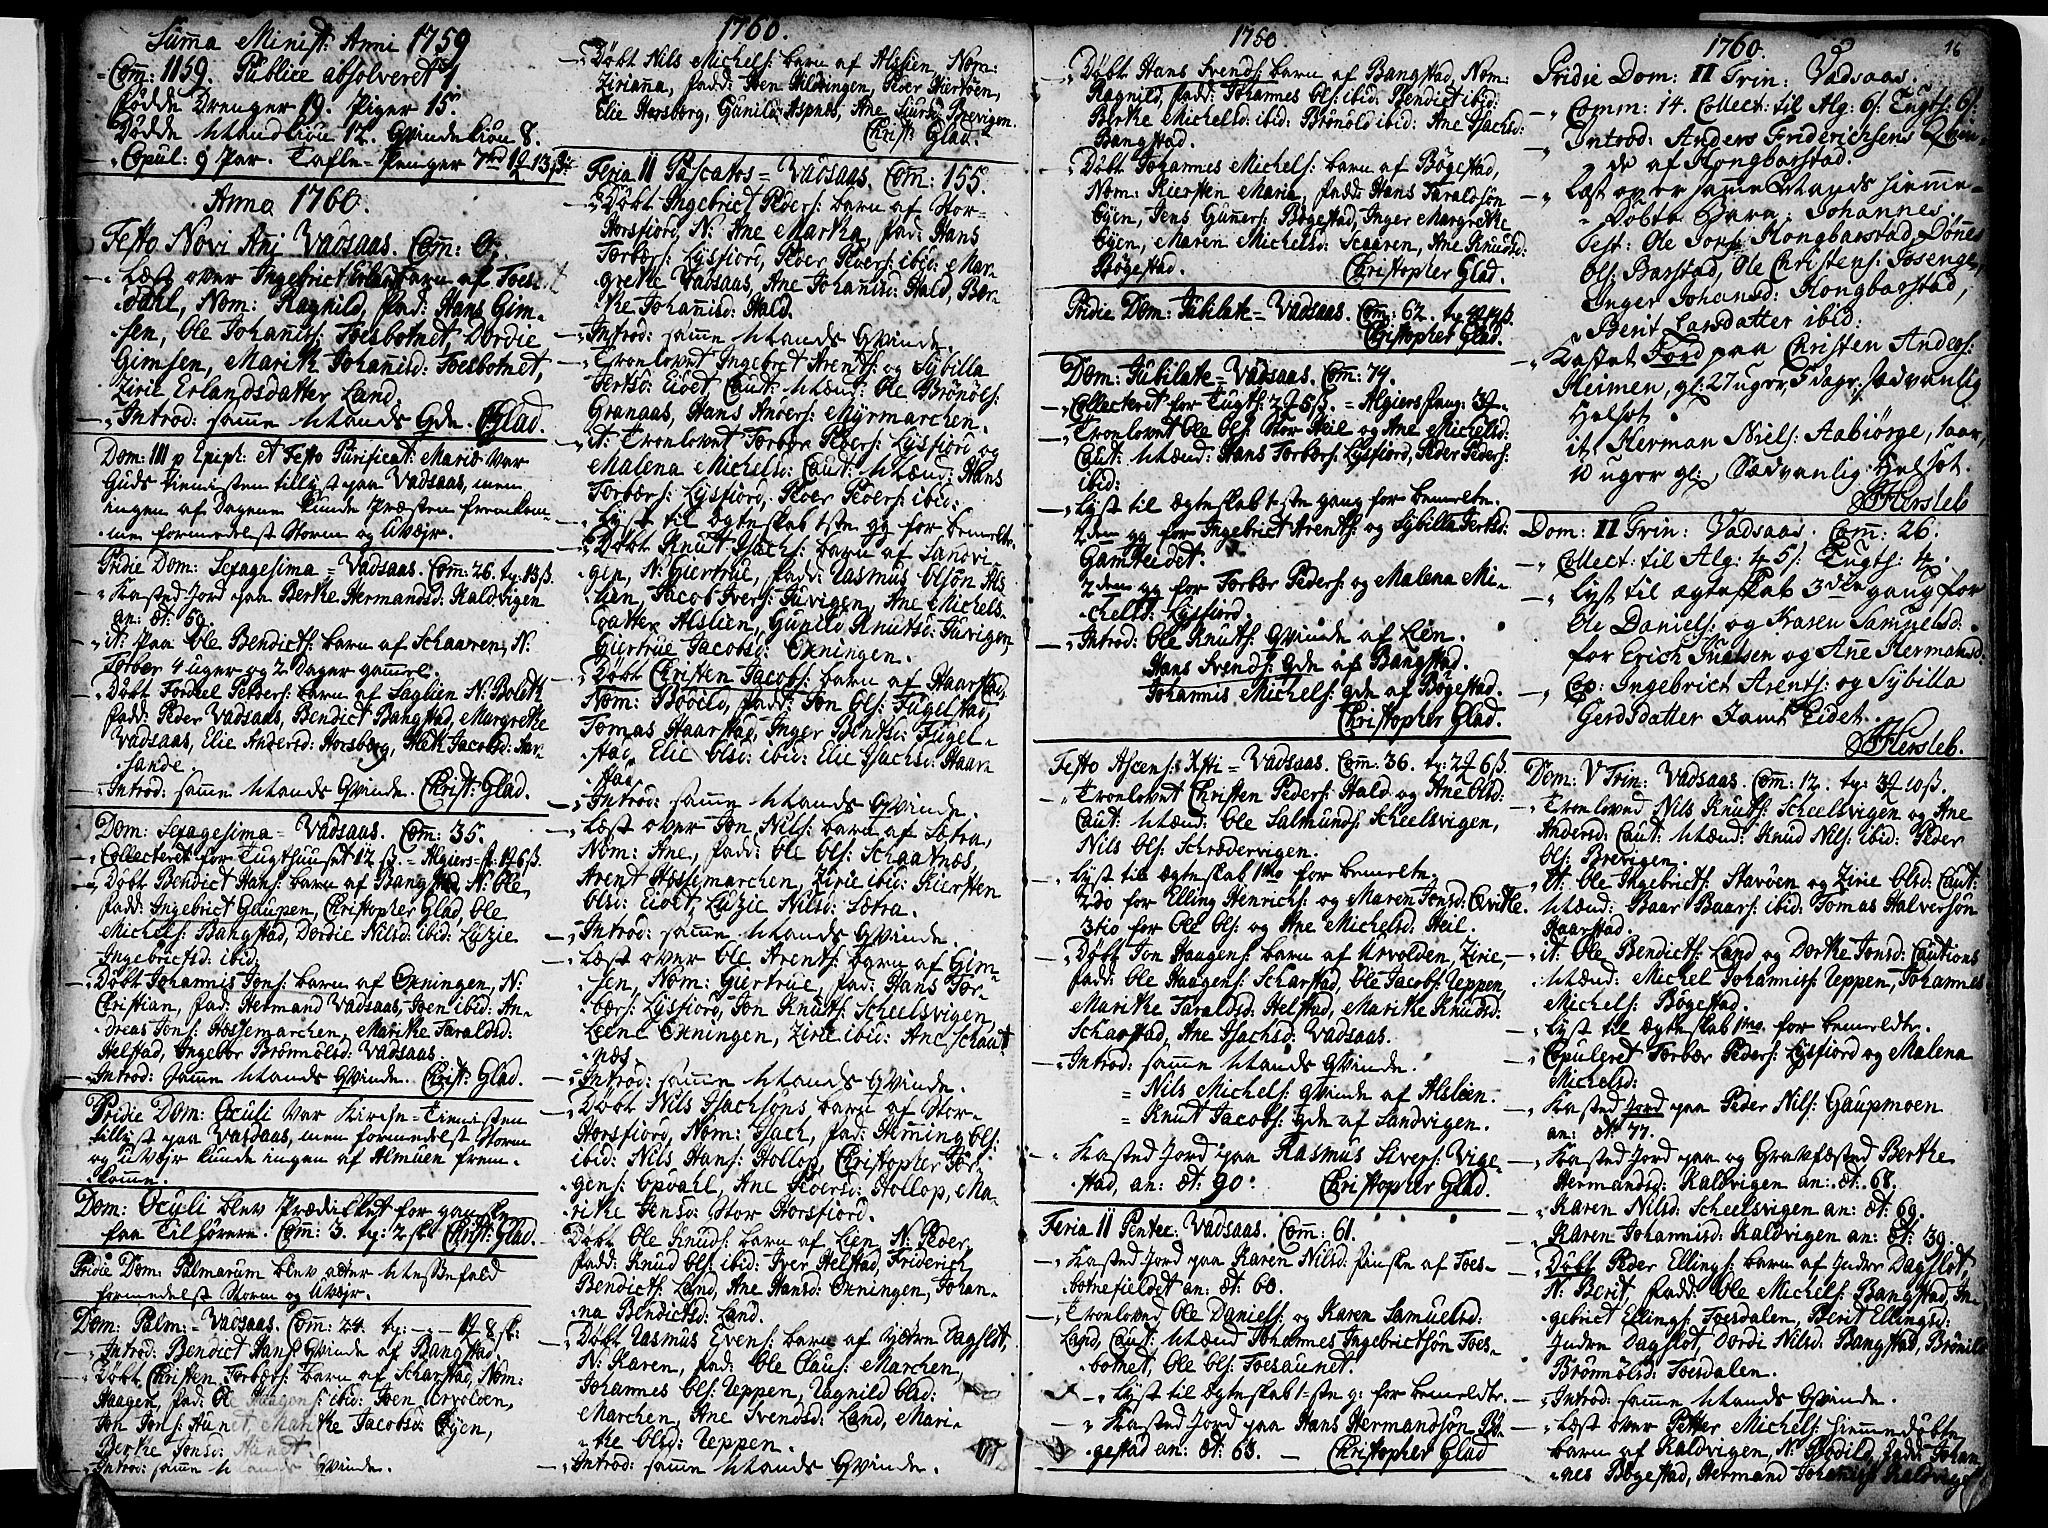 Summa Minist: Anni 1759
Com: 1159. Publice absolveret 1
fødde Drenger 19. Piger 15
Dødde Mandkiøn 12. Qvindekiøn 8.
Copul: 9 Par. Tafle-Penger
Anna 1760.
Festo Novi Ani Vadsaas. Com: 0.
Læst over Ingebrict barn af Foes-
dahl, Nom: Ragnild, fad: Hans Gim-
sen, Ole Johannis: Foesbotnet, Dordie
Gimsen, Marith Johanisd: Foesbotnet,
Zirie Erlandsdatter Land.
Introd: samme Mands Qde. Glad.
Dom: III p Epiph: et Festo Purificat: Mariæ var
Guds tienesten tillyst paa Vadsaas, men
ingen af Dagene kunde Præsten fremkom-
me formedelst Storm og Uvejr.
Pridie Dom: Sexagesima = Vadsaas. Com: 26. ty: 13 ß.
Kasted Jord paa Berthe Hermansd: Kaldvigen
an: æt: 69.
it: paa Ole Bendicts: barn af Schaaren, N:
Torber 4 uger og 2 Dager gammel.
Døbt Tordkel Peders: barn af Saglien N: Boleth
fadd: Peder Vadsaas, Bendict Bangstad, Margrethe
Vadsaas, Elie Andersd: Horsberg, Jacobsd: Aar-
sande.
Introd: samme Mands Qvinde. Christ: Glad.
Dom: Sexagesima = Vadsaas. Com: 35.
Collecteret for Tugthuuset 12 ß. = Algiers
Døbt Bendict Hans: barn af Bangstad, N: Ole,
fadd: Ingebrict Gaupen, Christopher Glad, Ole
Michels: Bangstad, Dordie Nilsd: ibid: Luzie
Ingebrictsd: ibid:
Døbt Johannis Jons: barn af Oxningen, N:
Christian, fad: Hermand Vadsaas, Joen ibid: An-
dreas Jons: Hossemarchen, Marithe Taraldsd:
Helstad, Ingebor Brønnolsd: Vadsaas.
Introd: samme Mands Qvinde. Christ: Glad.
Pridie Dom: Oculi var Kirche-Tienesten
tillyst paa Vadsaas, men formedelst Storm
og Uvejr kunde ingen af Almuen frem-
komme.
Dom: Oculi blev Prædisket for ganske
faa Tilhørere. Com: 3. ty: 2 sk: Christ: Glad.
Pridie Dom: Palmarum blev atter Messefald
formedelst Storm og Uvejr.
Dom: Palm: = Vadsaas. Com: 24. ty:
Introd: Bendict Hans: Qvinde af Bangstad.
Døbt Christen Torbers: barn af Scharstad, Nom:
Haagen, fad: Ole Haagens: ibid: Joen Urvolden,
Jon Jons: Aunet, Marithe Jacobsd: Øyen,
Berthe Jonsd: Aunet
Introd: samme Mands Qvinde.
1760.
Døbt Nils Michels: barn af Alslien, Nom:
Zirianna, fadd: Iven Hildringen, Peder Kiertøen,
Elie Horsberg, Gunild Aspnes, Ane Siursd: Brevigen.
Christ: Glad.
Feria II Pascatos = Vadsaas. Com: 155.
Døbt Ingebrict Peders: barn af Stor-
Horsfiord, N: Ane Martha, fad: Hans
Torbers: Lysfiord, Peder Peders: ibid: Mar-
grethe Vadsaas, Ane Johanisd: Hald, Ber-
the Johanisd: Hald.
Introd: samme Mands Qvinde.
Tronlovet Ingebrict Arents: og Sybilla
Gertsd: Eidet Caut: Mænd: Ole Brønols:
Granaas, Hans Anders: Myrmarchen.
it: Tronlovet Torber Peders: Lysfiord og
Malena Michelsd: Caut: Mænd: Hans
Torbers: Lysfiord, Peder Peders: ibid:
Lyst til ægteskab 1ste gg for bemeldte.
Døbt Knut Jsachs: barn af Sandvi-
gen, N: Giertrue, fadd: Rasmus Olsøn Als-
lien, Jacob Ivers: Juvigen, Ane Michels-
datter Alslien, Gunild Knutsd: Juvigen,
Giertrue Jacobsd: Oxningen.
Døbt Christen Jacobs: barn af Haarstad,
Nom: Bodild, fadd: Jon Ols: Fugelstad,
Tomas Haarstad, Inger Bentsd: Fugel-
stad, Elie Olsd: ibid: Elie Jsachsd: Haar-
stad.
Introd: samme Mands Qvinde.
Læst over Jon Nils: barn af Sætra,
Nom: Ane, fadd: Ole Ols: Schaatnæs,
Arent Hossemarchen, Zirie ibid: Kiersten
Olsd: Eidet, Luzie Nilsd: Sætra.
Introd: samme Mands Qvinde.
Læst over Ole Arents: barn af Gim-
sen, Nom: Giertrue, fad: Hans Tor-
bers: Lysfiord, Jon Knuts: Scheelsvigen,
Lene Oxningen, Zirie ibid: Ane Schaat-
næs.
Introd: samme Mands Qvinde.
Døbt Nils Jsachsøns barn af Stor-
Horsfiord, Nom: Jsach, fad: Hemming Ols:
ibid: Nils Hans: Hollop, Christopher Jør-
gens: Opdahl, Ane Pedersd: Hollop, Ma-
rithe Jensd: Stor Horsfiord.
Døbt Ole Knuds: barn af Lien N: Peder,
fadd: Knud Ols: ibid: Iver Helstad, Friderich
Bendicts: Land, Ane Hansd: Oxningen, Johan-
na Bendictsd: Land.
Døbt Rasmus Evens: barn af Dagslot,
N: Karen, fad: Ole Claus: Marchen,
Johannes Ols: Reppen, Ragnild Olsd:
Marchen, Ane Svendsd: Land, Mari-
the Olsd: Reppen.
Introd: samme Mands Qvinde.
1760
Døbt Hans Svends: barn af Bangstad, Nom:
Ragnild, fadd: Johannes Ols: ibid: Bendict ibid:
Berthe Michelsd: ibid: Brønold ibid: Ane Jsachsd:
Bangstad.
Døbt Johannes Michels: barn af Bøgestad,
Nom: Kiersten Maria, fadd: Hans Taraldsøn
Øyen, Jens Gunners: Bøgestad, Inger Margrethe
Øyen, Maren Michelsd: Scaaren, Ane Knudsd:
Bøgestad. Christopher Glad.
Pridie Dom: Jubilate = Vadsaas. Com: 62.
Christopher Glad.
Dom: Jubilate = Vadsaas. Com: 79.
Collecteret for Tugth: = Algiers
Tronlovet Ole Ols: Stor Heil og Ane Michelsd:
Caut: Mænd: Hans Torbers: Lysfiord, Peder Peders:
ibid:
Lyst til ægteskab 1ste gang for bemeldte.
2den gg for Ingebrict Arents: og Sybilla Gertsd:
Gamheidet.
2den gg for Torber Peders: og Malena Mi-
chelsd: Lysfiord.
Introd: Ole Knuts: Qvinde af Lien.
Hans Svends: Qde af Bangstad.
Johannis Michels: qde af Bøgestad.
Christopher Glad.
Festo Ascens: Xsti = Vadsaas. Com: 36.
Tronlovet Christen Peders: Hald og Ane Olsd:
Caut: Mænd: Ole Salmunds: Scheelsvigen,
Nils Ols: Schrødervigen.
Lyst til ægteskab 1mo for bemeldte.
2do for Elling Henrichs: og Maren Jonsd:
3tio for Ole Ols: og Ane Michelsd: Heil.
Døbt Jon Haagens: barn af Urvolden, Zirie,
fadd: Ole Haagens: Scharstad, Ole Jacobs: Reppen,
Marithe Taraldsd: Helstad, Marithe Knudsd:
Scharstad, Ane Jsachsd: Vadsaas.
Introd: samme Mands Qvinde.
= Nils Michels: Qvinde af Alslien.
= Knut Jacobs: Qde af Sandvigen.
Kasted Jord paa Rasmus Sivers: Vige-
stad, an: æt: 90. Christopher Glad.
Feria II Pentec: Vadsaas. Com: 61.
Kasted Jord paa Karen Nilsd: af Foes-
botnefieldet an: æt: 60.
Tronloved Ole Daniels: og Karen Samuelsd:
Land, Caut: Mænd: Johannes Ingebrictsøn Foes-
botnet, Ole Ols: Foesaunet.
Lyst til Ægteskab 1-ste g: for bemeldte.
Kasted Jord paa Hans Hermandsøn Bø-
gestad an: æt: 63. Christopher Glad
1760. 16
Pridie Dom: II Trin: Vadsaas.
Comm: 14. Collect: til Alg: 6 ß. Tugth: 6 ß.
Introd: Anders Friderichsens Qvin-
de af Hongbarstad.
Læst over samme Mands hiemme-
døbte Barn: Johannes
Test: Ole Jons: Hongbarstad, Dønes
Ols: Barstad, Ole Christens: Tosenge,
Inger Johansd: Hongbarstad,
Berit Larsdatter ibid:
Kastet Jord paa Christen Anders:
Heimen, gl: 27 uger, 5 dage: sædvanlig
Helsot.
it: Herman Niels: Aabiørge, 1 aar,
10 uger gl:, Sædvanlig Helsot.
Hersleb
Dom: II Trin: Vadsaas. Com: 26.
Collect: til Alg: Tugth:
Lyst til ægteskab 3die gang for
Ole Daniels: og Karen Samuelsd:
for Erich Juelsen og Ane Hermansd:
Cop: Ingebrict Arents: og Sybilla
Gerdsdatter Eidet.
Hersleb.
Dom: V Trin: Vadsaas. Com: 12.
Tronloved Nils Knuts: Scheelsvigen og Ane
Andersd: Caut: Mænd: Knud Nils: ibid: Peder
Ols: Brevigen.
it: Ole Ingebricts: Stavøen og Zirie Olsd: Caut:
Mænd: Baar Baars: ibid: Tomas Halversøn
Haarstad.
it: Ole Bendicts: Land og Dorthe Jonsd: Cautions
Mænd: Michel Johannis: Reppen, Johannes
Michels: Bøgestad.
Lyst til ægteskab 1mo. for bemeldte.
Copuleret Torber Peders: Lysfiord og Malena
Michelsd:
Kasted Jord paa Peder Nils: Gaupmoen
an: æt: 77.
Kasted Jord paa og Grafæsted Berthe
Hermansd: Kaldvigen an: æt: 68.
Karen Nilsd: Scheelsvigen an: æt: 69.
Karen Johannisd: Kaldvigen an: æt: 39.
Døbt Peder Ellings: barn af Indre Dagslot
N: Berit, fadd: Ole Michels: Bangstad, In-
gebrict Ellings: Foesdalen, Berit Ellingsd:
Indre Dagslot, Dordi Nilsd: Bangstad, Brønild
Brønnolsd: Foesdalen.
Introd: samme Mands Qvinde.
Læst over Petter Michels: hiemmedøbte
barn af Kaldvigen, N: Bodild, fadd: Johan-
nes Bøgestad, Hermand Johanis: Kaldvigen